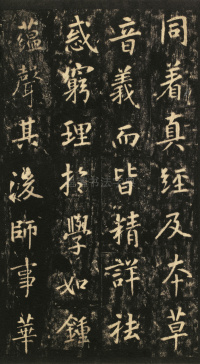 同着真經及本草
音義而皆精詳祛
惑窮理於學如鍾
蕴聲其後師事華